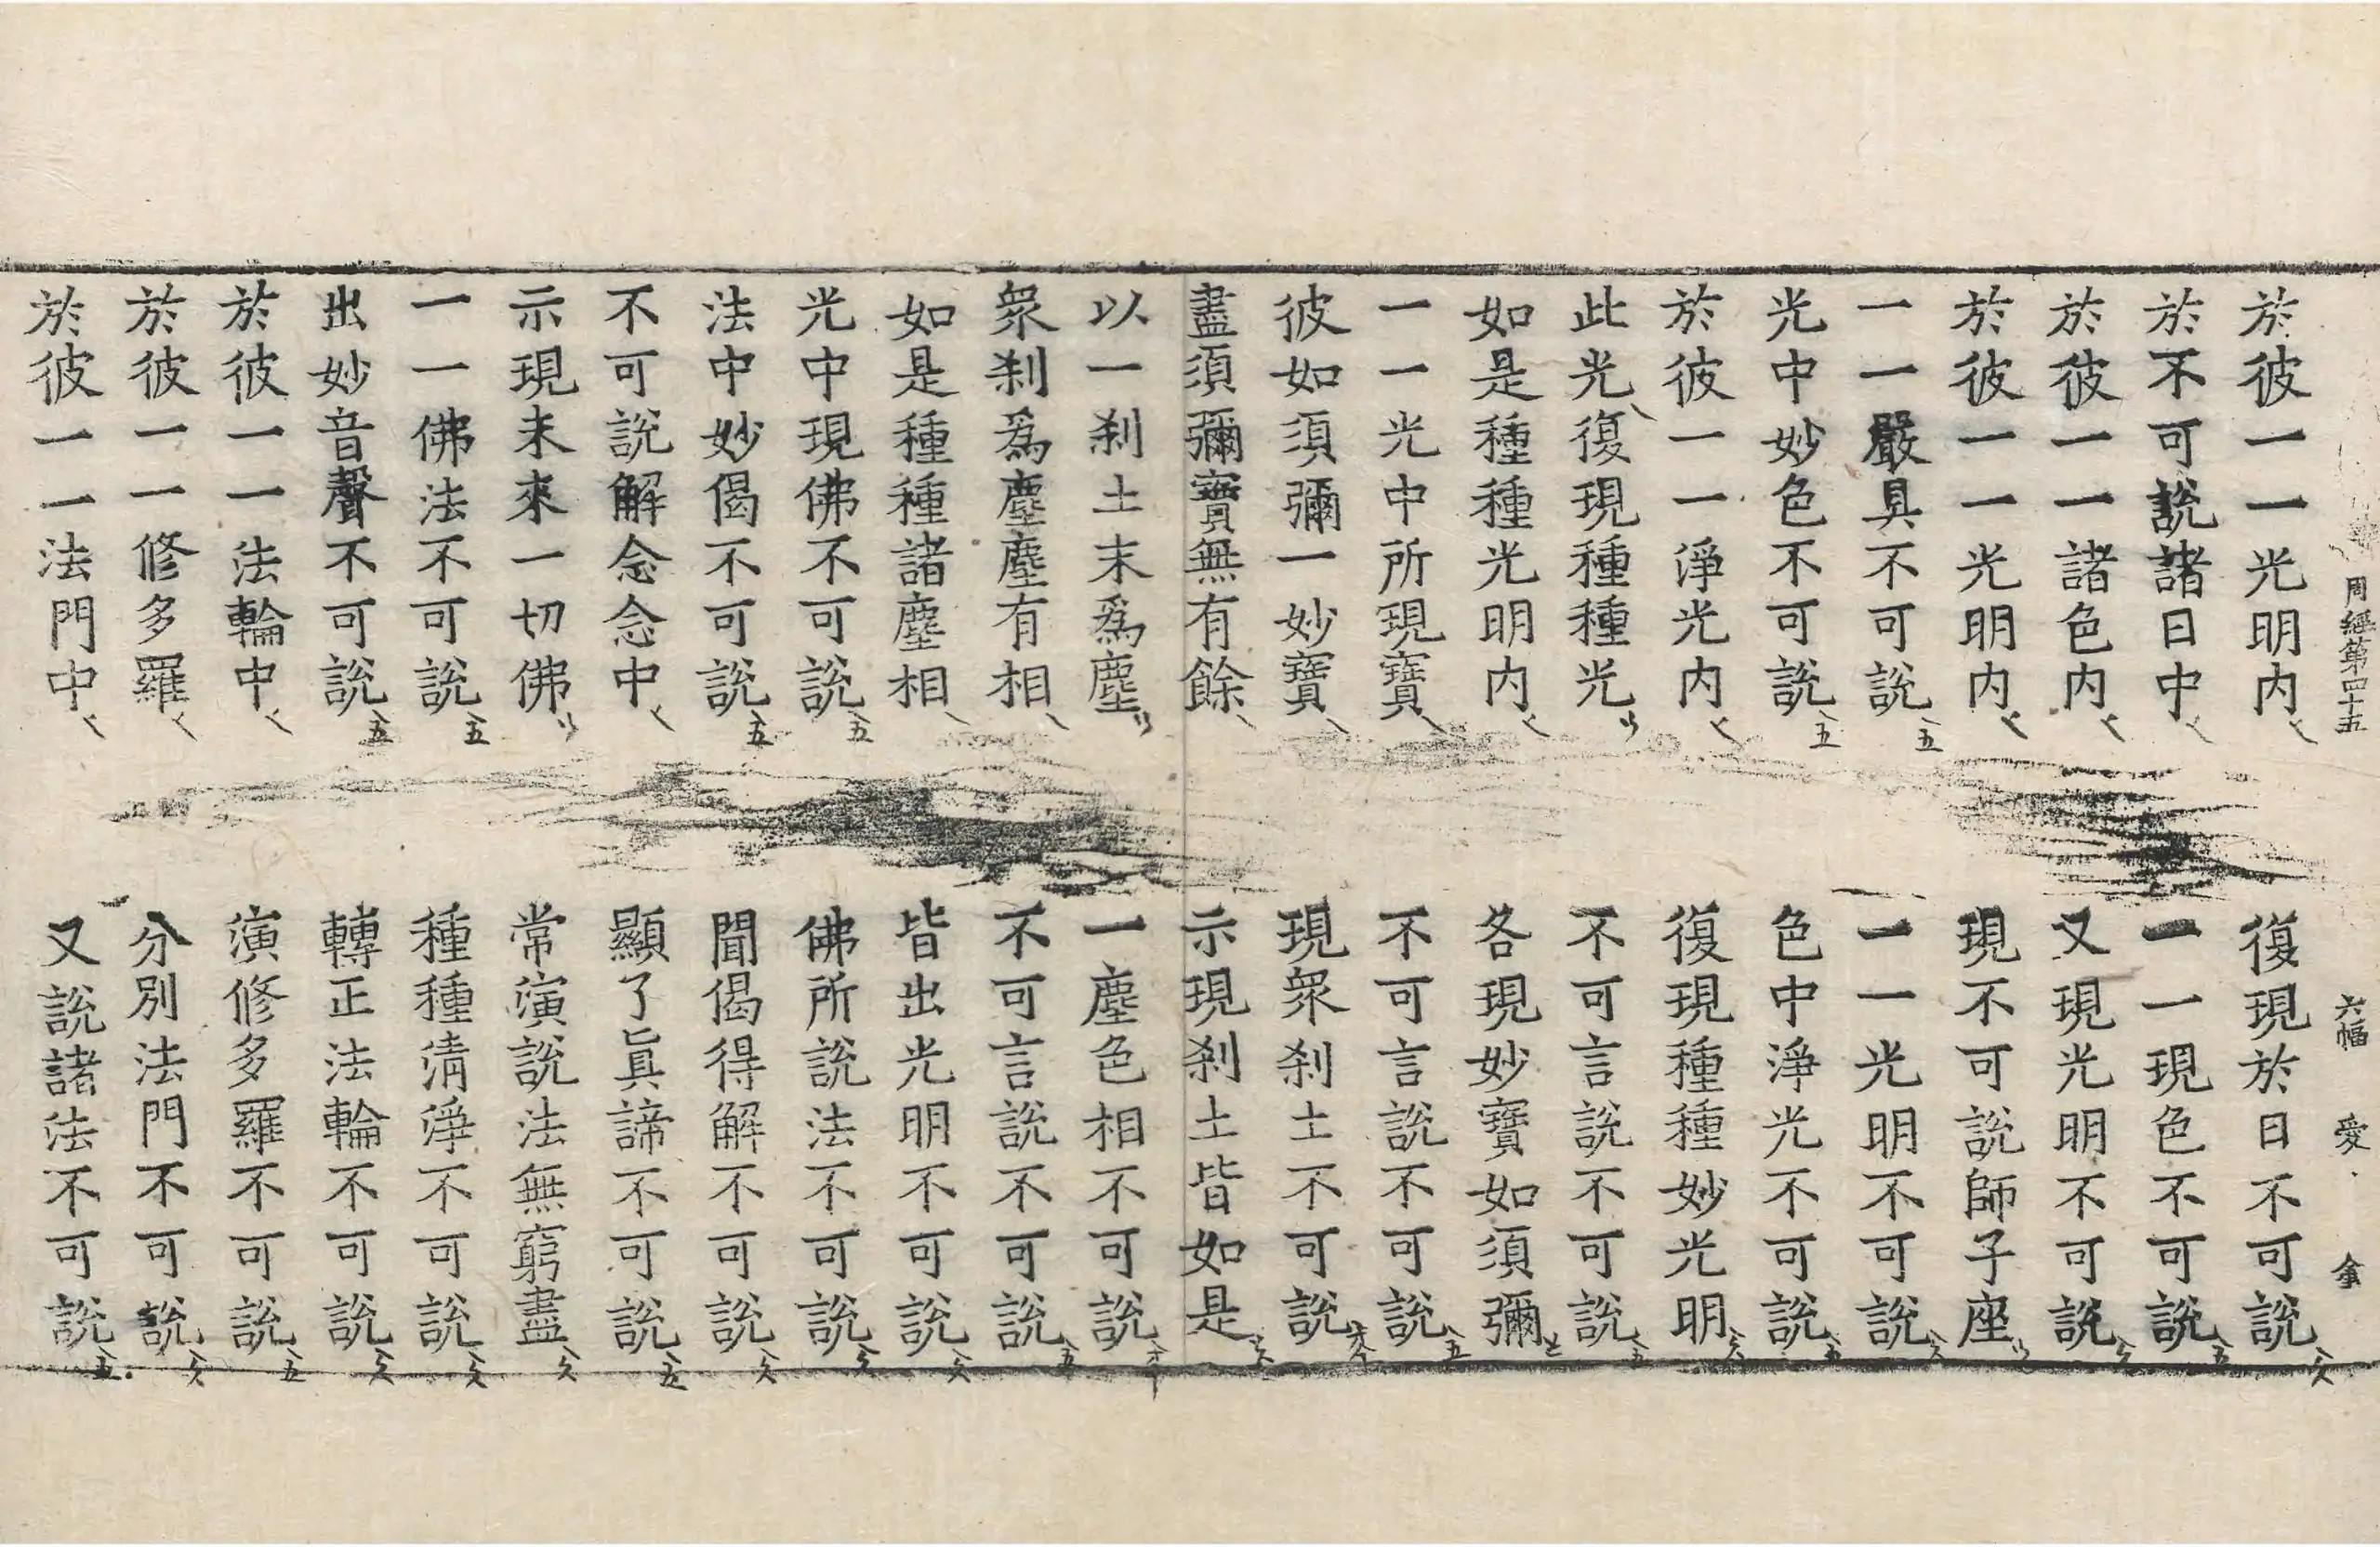 周經第四十五 六幅 愛
於彼一一光明內 復現於日不可說
於不可說諸日中 一一現色不可說
於彼一一諸色內 又現光明不可說
於彼一一光明內 現不可說師子座
一一嚴具不可說 一一光明不可說
光中妙色不可說 色中淨光不可說
於彼一一淨光內 復現種種妙光明
此光復現種種光 不可言說不可說
如是種種光明內 各現妙寶如須彌
一一光中所現寶 不可言說不可說
彼如須彌一妙寶 現眾刹土不可說
盡須彌寶無有餘 示現刹土皆如是
以一刹土末為塵 一塵色相不可說
眾刹為塵塵有相 不可言說不可說
如是種種諸塵相 皆出光明不可說
光中現佛不可說 佛所說法不可說
法中妙偈不可說 聞偈得解不可說
不可說解念念中 顯了眞諦不可說
示現未來一切佛 常演說法無窮盡
一一佛法不可說 種種清淨不可說
出妙音聲不可說 轉正法輪不可說
於彼一一法輪中 演修多羅不可說
於彼一一修多羅 分別法門不可說
於彼一一法門中 又說諸法不可說